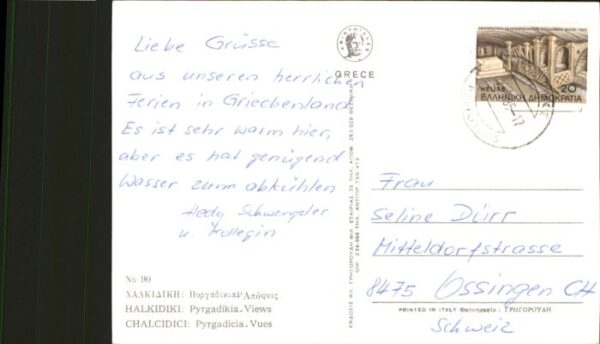 Liebe Grüsse
aus unseren herrlichen
Ferien in Griechenland
Es ist sehr warm hier,
aber es hat genügend
Wasser zum abkühlen
Hedy Schwengeler
u. Kollegin
GRECE
HELLAS 20
ΕΛΛΗΝΙΚΗ ΔΗΜΟΚΡΑΤΙΑ
Frau
Seline Dürr
Mitteldorfstrasse
8475 Ossingen CH
Schweiz
No 90
ΧΑΛΚΙΔΙΚΗ: Πυργαδίκια: Απόψεις
HALKIDIKI: Pyrgadikia. Views
CHALCIDICI: Pyrgadicia. Vues
PRINTED IN ITALY Φωτογραφία: ΓΡΗΓΟΡΟΥΔΗ